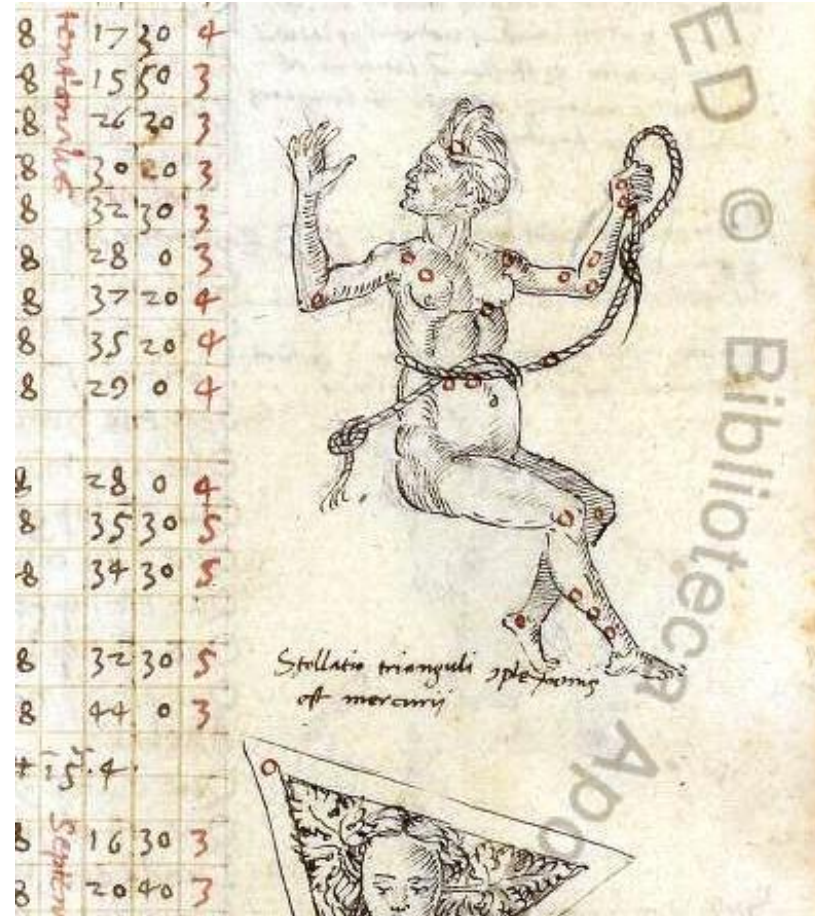 8 17 30 4
8 15 50 3
8 26 30 3
8 30 20 3
8 32 30 3
8 28 0 3
8 37 20 4
8 35 20 4
8 29 0 4
8 28 0 4
8 35 30 5
8 34 30 5
8 32 30 5
8 44 0 3
15.4.
8 16 30 3
8 20 40 3
Septen
Stellatio trianguli
est mercurij
ED © Biblioteca Apo